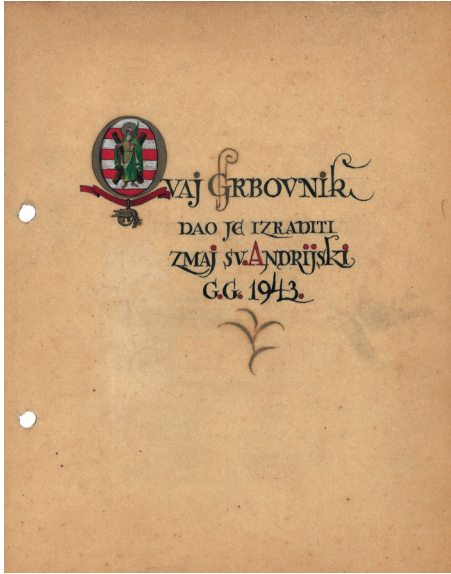 OVAJ GRBOVNIK
DAO JE IZRADITI
ZMAJ SV. ANDRIJSKI
G.G. 1943.